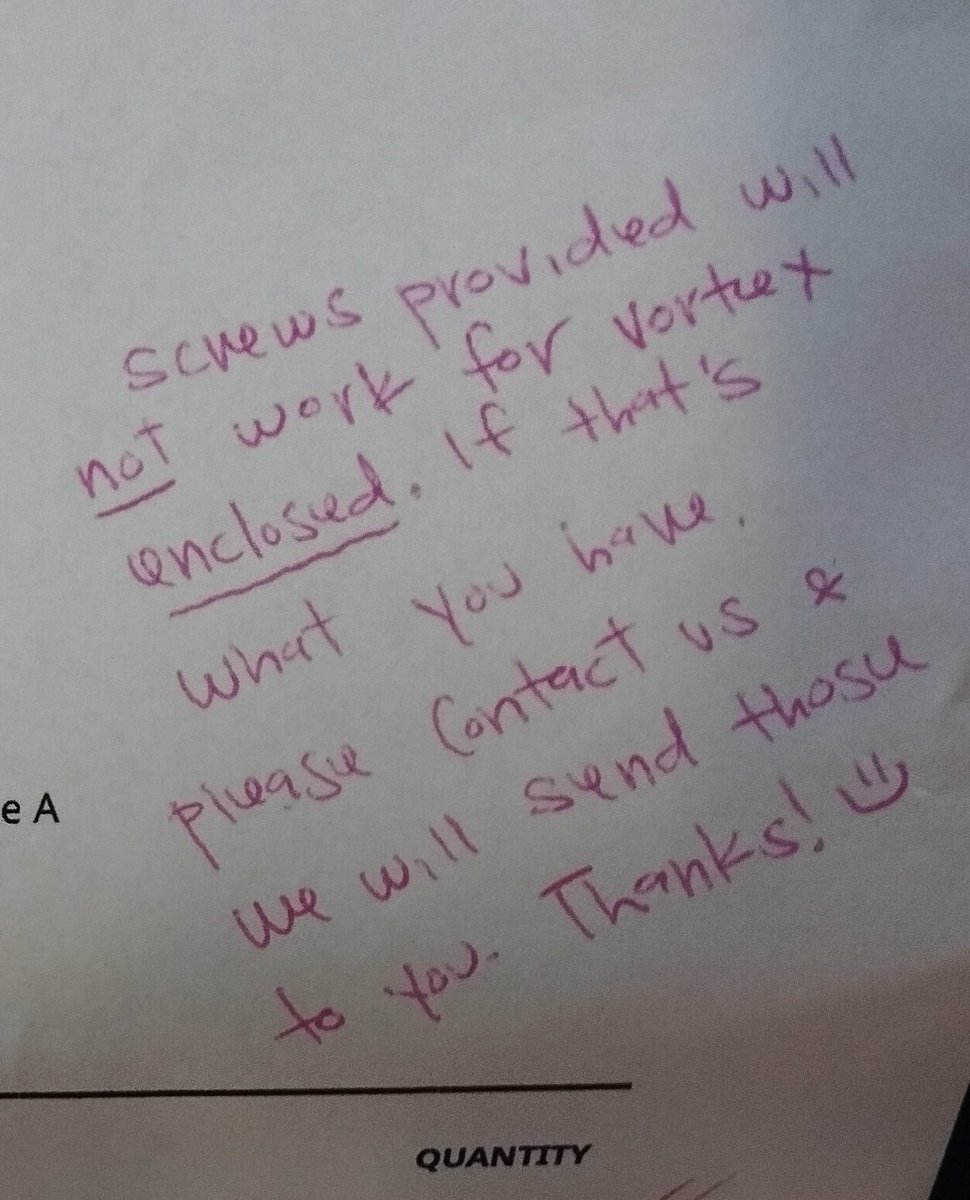 screws provided will
not work for vortex
enclosed. If that's
what you have.
please contact us &
we will send those
to you. Thanks!
e A
QUANTITY